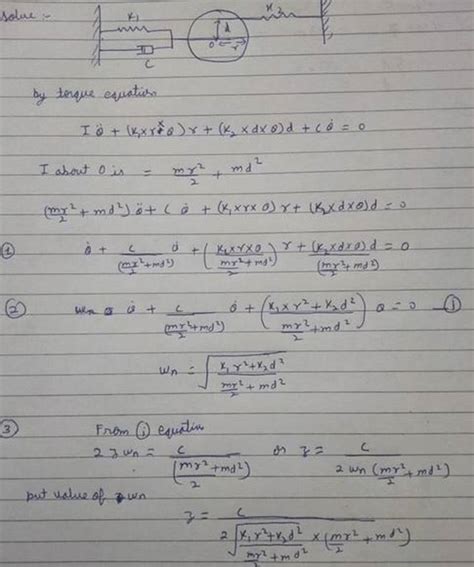 Solue :-
K₁ K₂
d
o r
C
by torque equation
I θ̈ + (K₁×r×θ) r + (K₂×d×θ)d + Cθ̇ = 0
I about O is = mr²/2 + md²
(mr²/2 + md²) θ̈ + C θ̇ + (K₁×r×θ) r + (K₂×d×θ)d = 0
① θ̈ + C/(mr²/2+md²) θ̇ + (K₁×r×θ)/(mr²/2+md²) r + (K₂×d×θ)d/(mr²/2+md²) = 0
② θ̈ + C/(mr²/2+md²) θ̇ + ((K₁×r²+K₂d²)/(mr²/2+md²)) θ = 0 — ①
wn = √((K₁r²+K₂d²)/(mr²/2+md²))
③ From ① equation
2 ȝ wn = C/(mr²/2+md²) or ȝ = C/(2 wn (mr²/2+md²))
put value of wn
ȝ = C/(2√((K₁r²+K₂d²)/(mr²/2+md²)) × (mr²/2+md²))